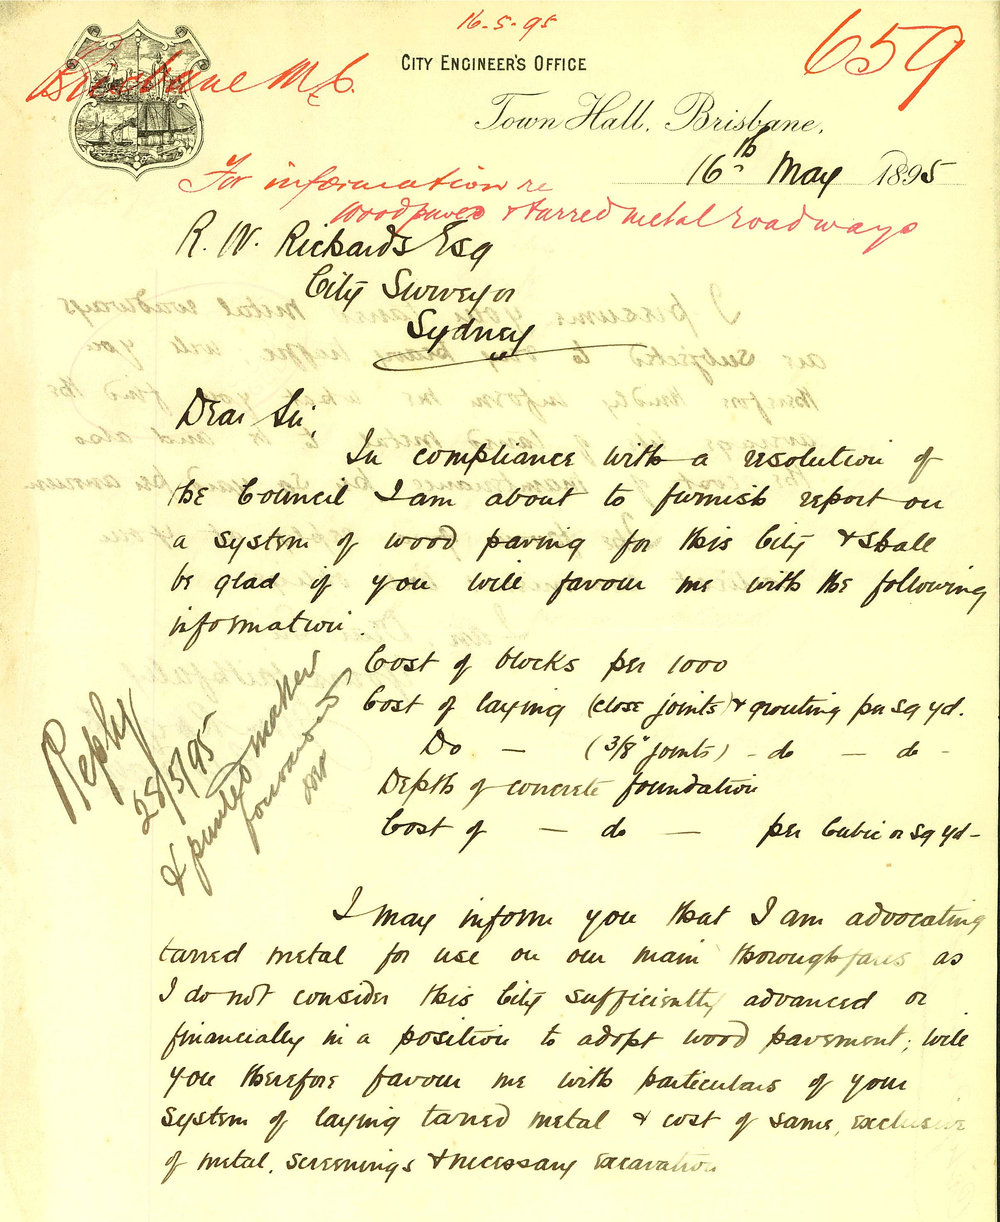 16-5-95
659
Brisbane M.C.
CITY ENGINEER'S OFFICE
Town Hall, Brisbane,
16th May 1895
For information re
Woodpaved & tarred metal roadways
R. W. Richards Esq
City Surveyor
Sydney
Dear Sir,
In compliance with a resolution of
the Council I am about to furnish report on
a system of wood paving for this City & shall
be glad if you will favour me with the following
information.
Cost of blocks per 1000
Cost of laying (close joints) & grouting per sq yd.
Do — (3/8" joints) - do — do -
Depth of concrete foundation
Cost of — do — per Cubic or sq yd -
Reply
28/5/95
& printed matter
forwarded
I may inform you that I am advocating
tarred metal for use on our main thoroughfares as
I do not consider this City sufficiently advanced or
financially in a position to adopt wood pavement; will
you therefore favour me with particulars of your
system of laying tarred metal & cost of same, exclusive
of metal, screenings & necessary excavation